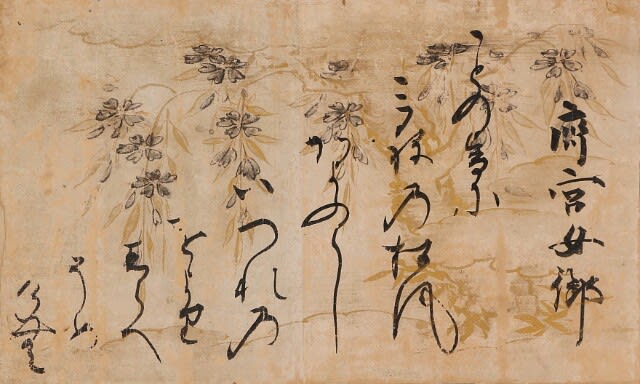 斎宮女御
ことの音に
みねの松風
かよふらし
いつれの
をより
しらへ
そめ
けむ